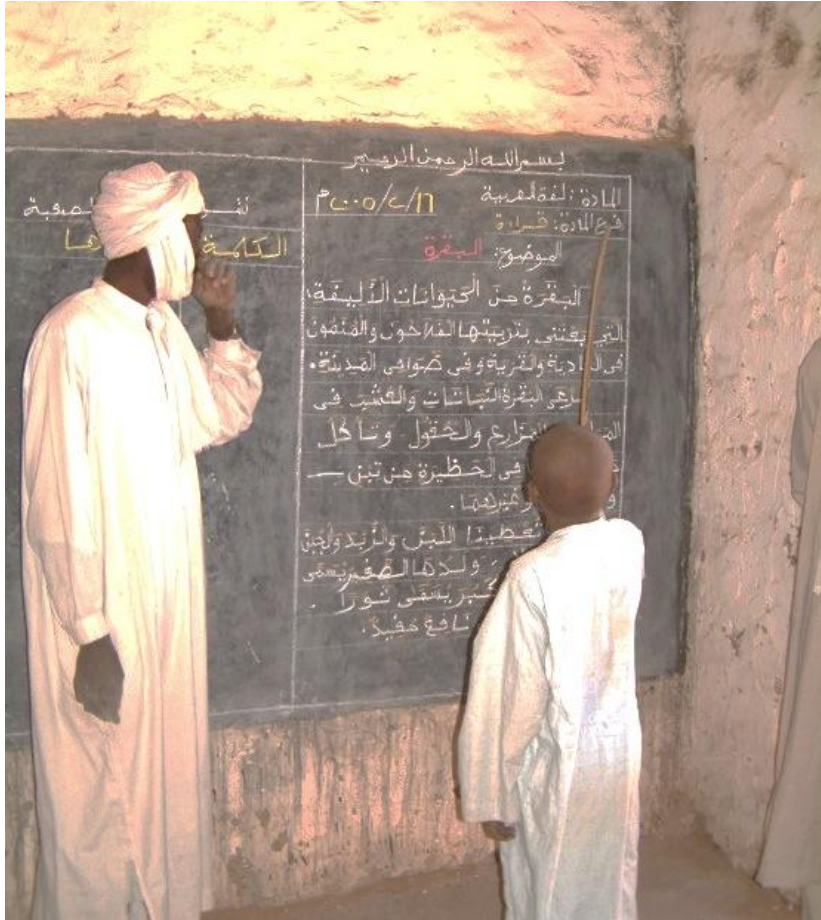 بسم الله الرحمن الرحيم
المادة: لغة العربية ٢٠٠٥/٢/١٦م
فرع المادة: قراءة
الموضوع: البقرة
البقرة من الحيوانات الأليفة،
التي يعتني بتربيتها الفلاحون والمنمون
في البادية والقرية وفي ضواحي المدينة.
البقرة النباتات والعشب في
المزارع والحقول وتأكل
في الحظيرة من تبن —
غيرهما.
تعطينا اللبن والزبد والجبن
ولدها الصغير يسمى
يسمى ثورا.
نافع مفيد.
الصعبة
الكلمة